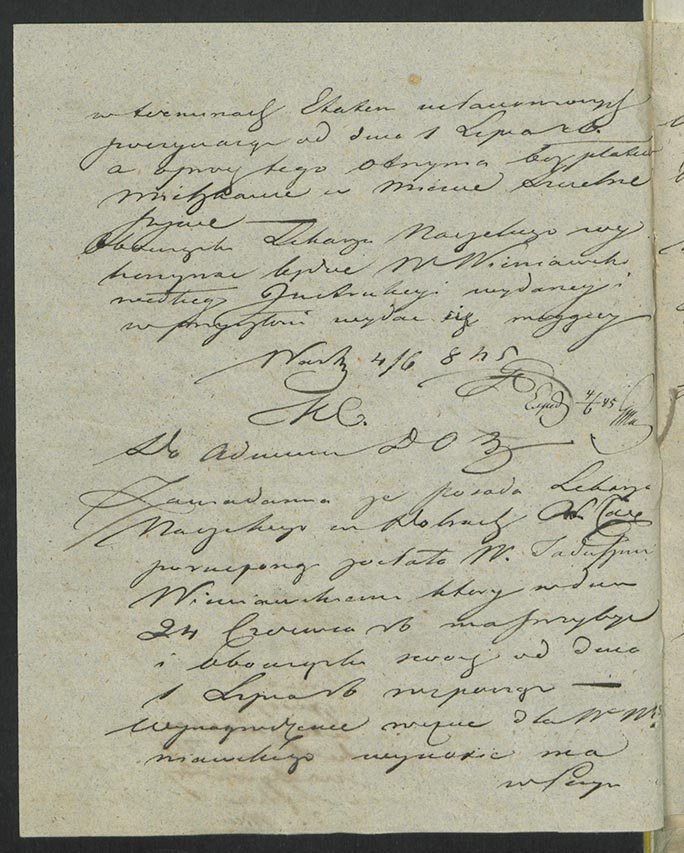 w terminach Etatem ustanowionych
poczynając od dnia 1 Lipca r. b.
a oprócz tego otrzyma bezpłatne
mieszkanie w mieście
Obowiązki Lekarza Naczelnego wy
konywać będzie W Wieniawski
według Instrukcyi wydanej i
w przyszłości wydać się mogącej
Warsz 4/6 845
Exped 4/6 45
Do Admin D O Z
Zawiadamia że posada Lekarza
Naczelnego w Dobrach
poruczoną została W. Tadeuszowi
Wieniawskiemu który w dniu
24 Czerwca rb ma przybyć
i obowiązki swoje od dnia
1 Lipca rb rozpocząć —
Wynagrodzenie roczne dla W° Wie
niawskiego wynosić ma